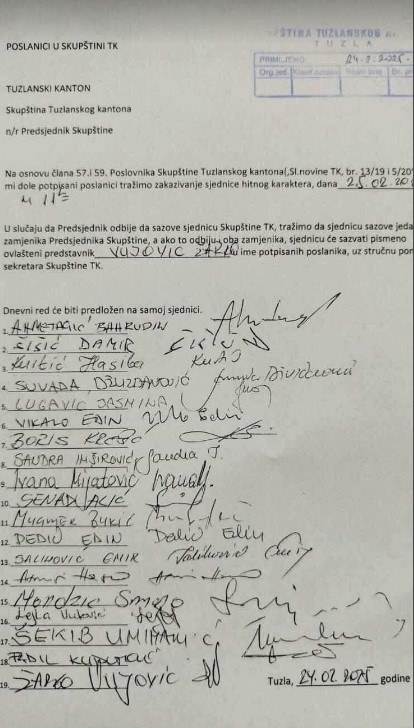 ŠTINA TUZLANSKOG
TUZLA
PRIMLJENO
24-2-2025-
Org.jed.
POSLANICI U SKUPŠTINI TK
TUZLANSKI KANTON
Skupština Tuzlanskog kantona
n/r Predsjednik Skupštine
Na osnovu člana 57.i 59. Poslovnika Skupštine Tuzlanskog kantona(„Sl.novine TK, br. 13/19 i 5/20
mi dole potpisani poslanici tražimo zakazivanje sjednice hitnog karaktera, dana 25.02.20
u 11
U slučaju da Predsjednik odbije da sazove sjednicu Skupštine TK, tražimo da sjednicu sazove jeda
zamjenika Predsjednika Skupštine, a ako to odbiju oba zamjenika, sjednicu će sazvati pismeno
ovlašteni predstavnik VUJOVIĆ u ime potpisanih poslanika, uz stručnu po
sekretara Skupštine TK.
Dnevni red će biti predložen na samoj sjednici.
1. AHMETAGIĆ BAHRUDIN
2. ŠIŠIĆ DAMIR
3. Hasiba
4. SUVADA
5. LUGAVIĆ JASMINA
6. VIKALO EDIN
7. BORIS KREŠIĆ
8. SANDRA IMŠIROVIĆ Sandra I.
9. Ivana Mijatović
10. SENAD ALIĆ
11.
12. DEDIĆ EDIN Dedić Edin
13. SALIHOVIĆ EMIR Salihović Emir
14.
15. Mordžić
16. Lejla Vuković
17. ŠEKIB UMIHANIĆ
18. FADIL
19. ŽARKO VUJOVIĆ
Tuzla, 24.02 2025 godine